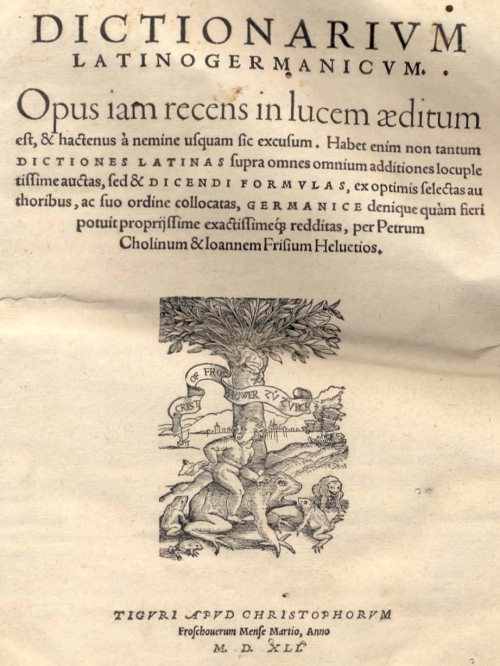 DICTIONARIVM
LATINOGERMANICVM.
Opus iam recens in lucem æditum
est, & hactenus à nemine usquam sic excusum. Habet enim non tantum
DICTIONES LATINAS supra omnes omnium additiones locuple
tissime auctas, sed & DICENDI FORMVLAS, ex optimis selectas au
thoribus, ac suo ordine collocatas, GERMANICE denique quàm fieri
potuit proprijssime exactissimeq́ꝫ redditas, per Petrum
Cholinum & Ioannem Frisium Heluetios.
CRIST OF FROSCHOWER ZV ZVRICH
TIGVRI APVD CHRISTOPHORVM
Froschouerum Mense Martio, Anno
M. D. XLI.